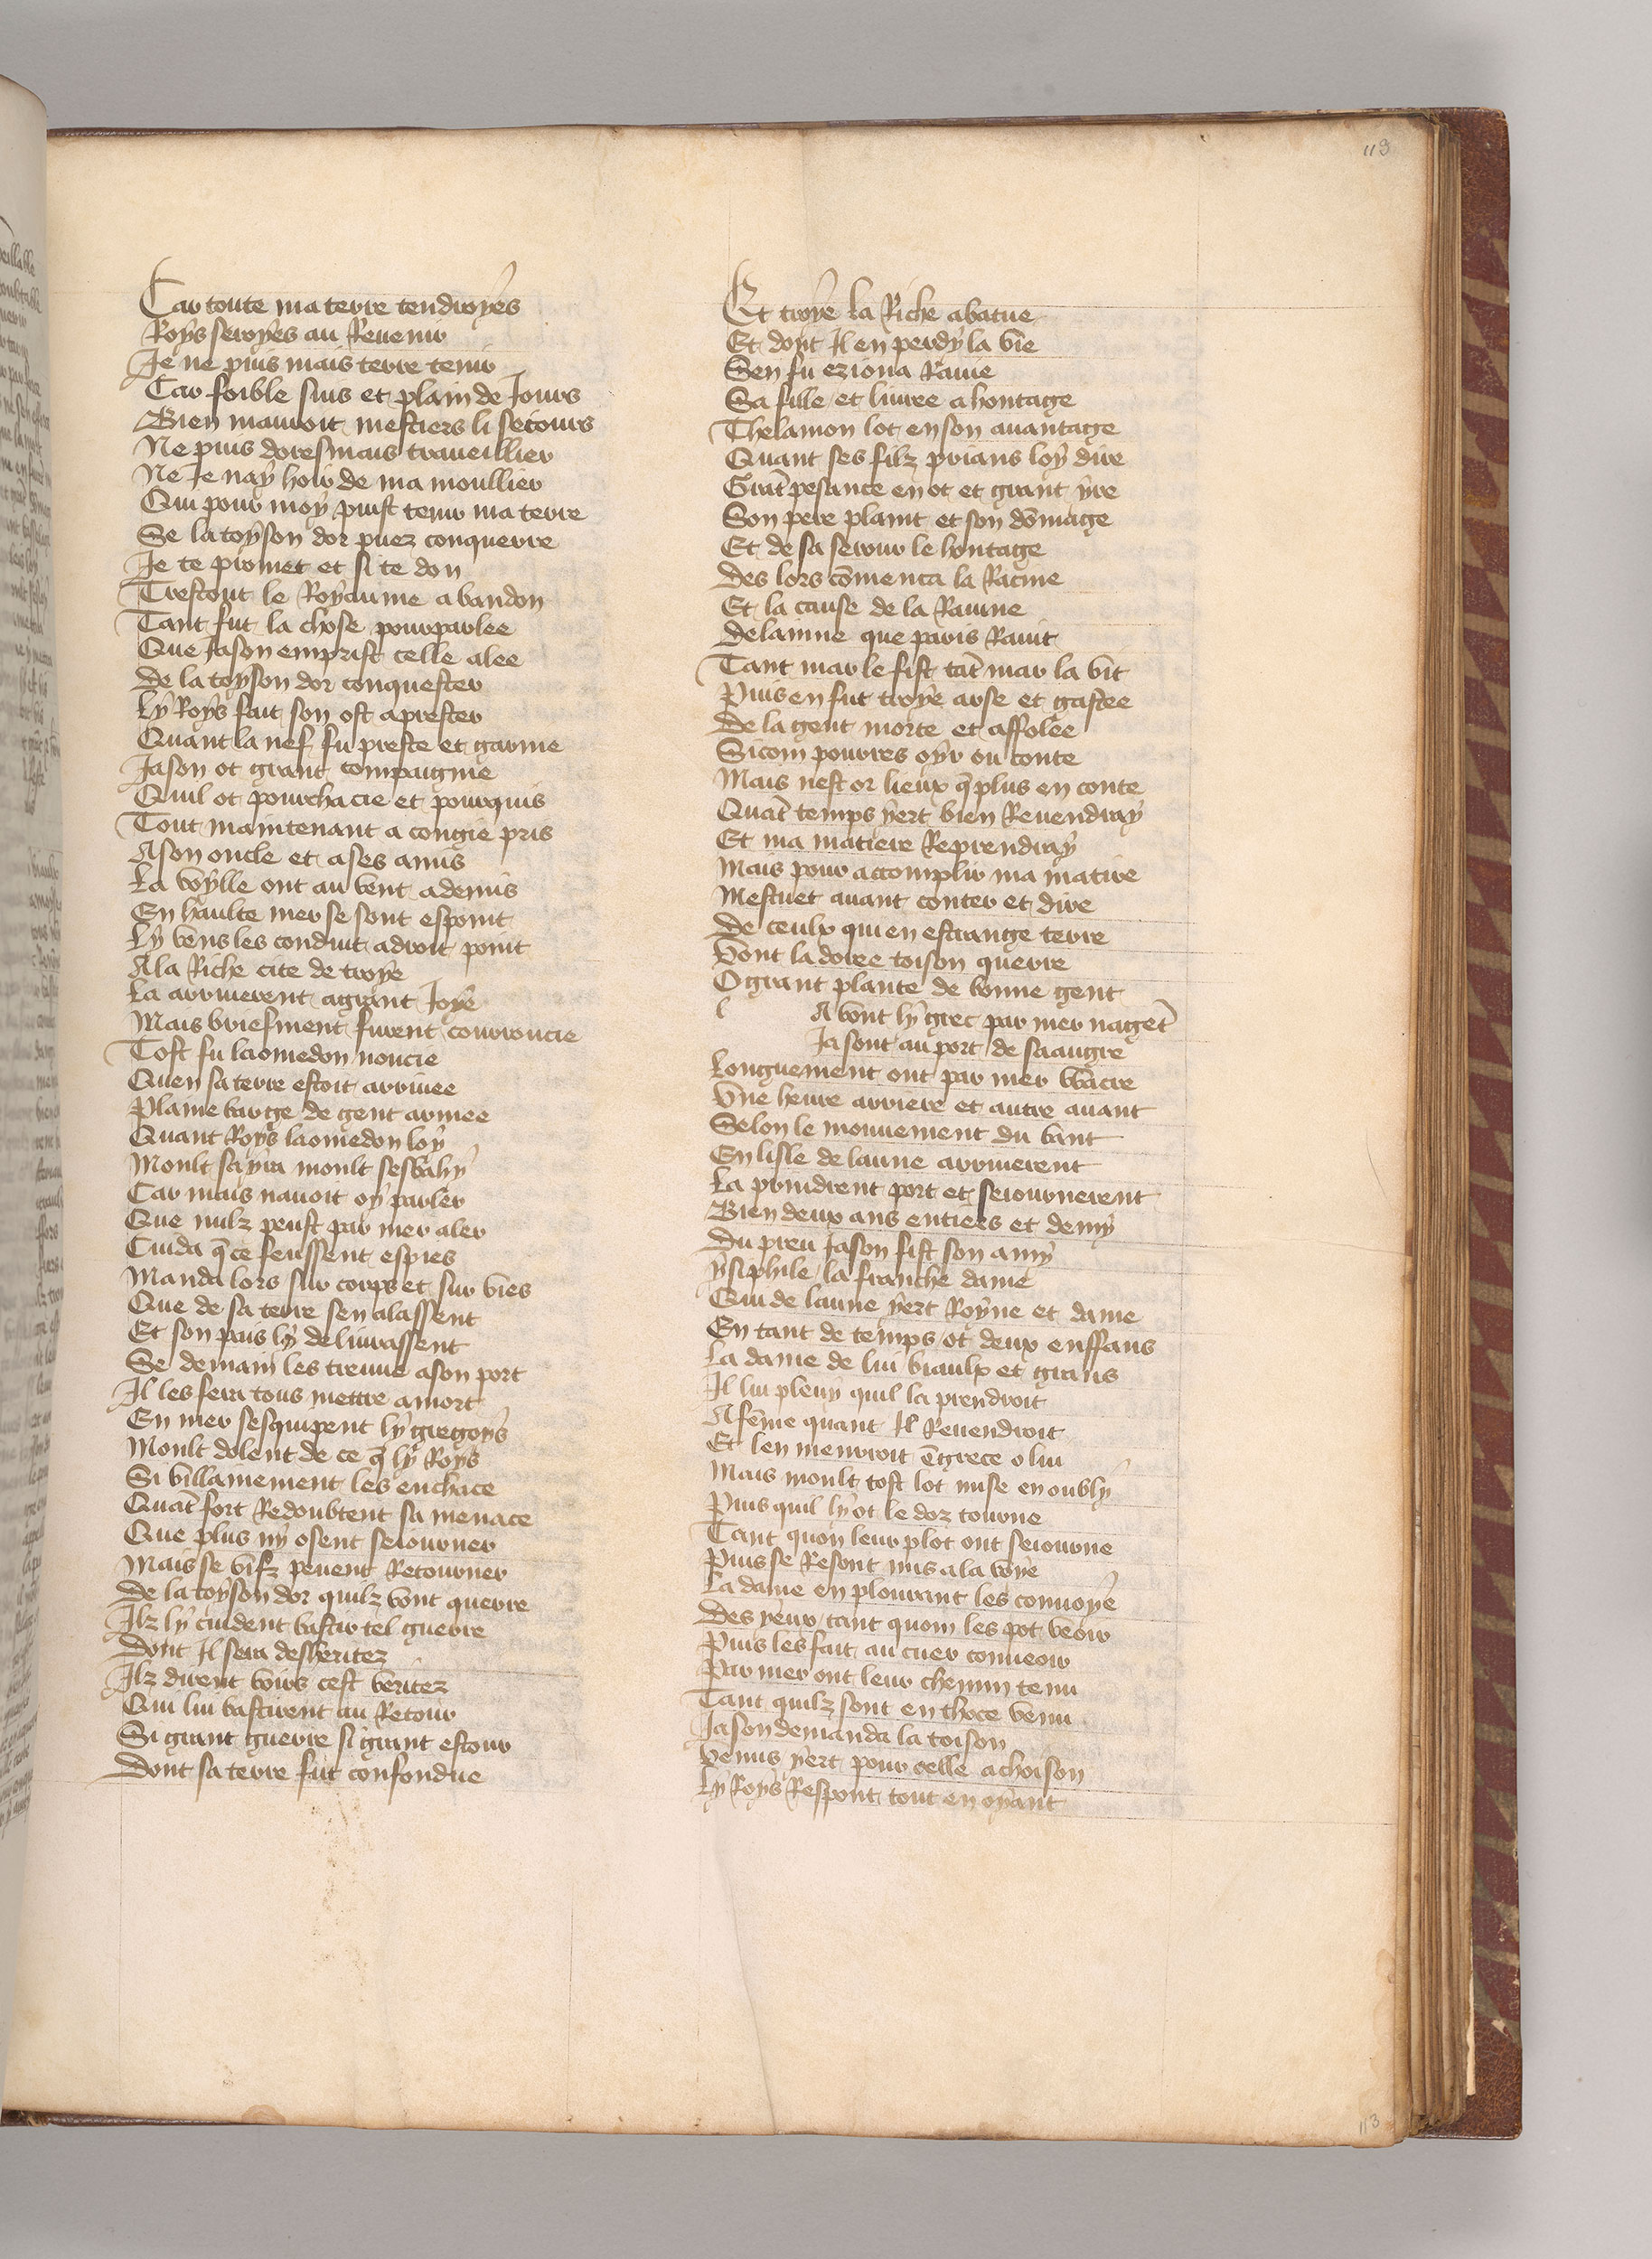 113
Car toute ma terre tendroyes
Roys seroyes au Revenir
Je ne puis mais terre tenir
Car foible suis et plain de Jours
Bien mauroit mestiers li secours
Ne puis doresmais traveillier
Ne Je nay hoir de ma moullier
Qui pour moy puist tenir ma terre
Se la toyson dor puez conquerre
Je te promet et si te don
Trestout le Royaume abandon
Tant fut la chose pourparlee
Que Jason emprist celle alee
De la toyson dor conquester
Ly Roys fait son ost aprester
Quant la nef fu preste et garnie
Jason ot grant compaignie
Quil ot pourchacie et pourquis
Tout maintenant a congie pris
A son oncle et a ses amis
La voylle ont au vent ademis
En haulte mer se sont espoint
Ly vens les conduit adroit point
A la Riche cite de troye
La arriverent agrant Joye
Mais briefment furent courroucie
Tost fu laomedon noncie
Quen sa terre estoit arrivee
Plaine barge de gent armee
Quant Roys laomedon loy
Moult sayra moult sesbahy
Car mais navoit oy parler
Que nulz peust par mer aler
Cuida q̄ ce feussent espies
Manda lors sur corps et sur vies
Que de sa terre sen alassent
Et son pais ly delivrassent
Se demain les treuve ason port
Il les fera tous mettre amort
En mer sesquipent ly gregoys
Moult dolent de ce q̄ ly Roys
Si villainement les enchace
Quāt fort Redoubtent sa menace
Que plus ny osent seiourner
Mais se vifz pevent Retourner
De la toyson dor quilz vont querre
Ilz ly cuident bastir tel guerre
Dont Il sera desheritez
Ilz dirent voirs cest veritez
Qui lui bastirent au Retour
Si grant guerre si grant estour
Dont sa terre fut confondue
Et troye la Riche abatue
Et dont Il en perdy la vie
Sen fu eziona Ravie
Sa fille et livree a hontage
Thelamon lot en son avantage
Quant ses filz prians loy dire
Grāt pesance en ot et grant yre
Son pere plaint et son dōmage
Et de sa serour le hontage
Des lors cōmenca la Racine
Et la cause de la Ravine
Delainne que paris Ravit
Tant mar le fist tāt mar la vit
Puis en fut troye arse et gastee
De la gent morte et affolee
Sicom pourres oyr ou conte
Mais nest or lieux q̄ plus en conte
Quāt temps yert bien Revendray
Et ma matiere Reprendray
Mais pour accomplir ma matire
Mestuet avant conter et dire
De ceulx qui en estrange terre
Vont la doree toison querre
O grant plante de bonne gent
l A vont ly grec par mer nagēt
Ja sont au port de saaugre
Longuement ont par mer wacre
Vne heure arriere et autre avant
Selon le mouvement du vant
En lisle de laune arriverent
La prindrent port et seiournerent
Bien deux ans entiers et demy
Du preu Jason fist son amy
ysiphile la franche dame
Qui de laune yert Royne et dame
En tant de temps ot deux enffans
La dame de lui biaulx et grans
Il lui pleuy quil la prendroit
A fēme quant Il Revendroit
Et len menrroit ēgrece o lui
Mais moult tost lot mise en oubly
Puis quil ly ot le doz tourne
Tant quon leur plot ont seiourne
Puis se Resont mis a la voye
La dame en plourant les convoye
Des yeux tant quom les pot veoir
Puis les fait au cuer conveoir
Par mer ont leur chemin tenu
Tant quilz sont en thoce venu
Jason demanda la toison
Venus yert pour celle achoison
Ly Roys Respont tout en oyant
113